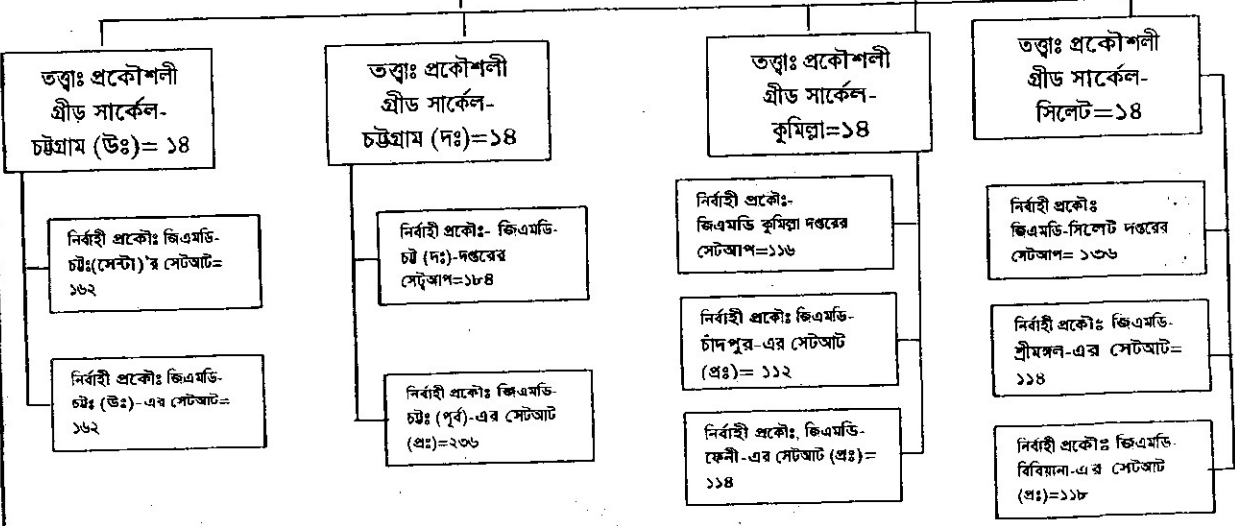 তত্ত্বাঃ প্রকৌশলী
গ্রীড় সার্কেল-
চট্টগ্রাম (উঃ)= ১৪
নির্বাহী প্রকৌঃ জিএমডি-
চট্টঃ(সেন্টা)'র সেটআট=
১৬২
নির্বাহী প্রকৌঃ জিএমডি-
চট্টঃ (উঃ)-এর সেটআট=
১৬২
তত্ত্বাঃ প্রকৌশলী
গ্রীড সার্কেল-
চট্টগ্রাম (দঃ)=১৪
নির্বাহী প্রকৌঃ- জিএমডি-
চট্ট (দঃ)-দপ্তরের
সেটআপ=১৮৪
নির্বাহী প্রকৌঃ জিএমডি-
চট্টঃ (পূর্ব)-এর সেটআট
(প্রঃ)=২৩৬
তত্ত্বাঃ প্রকৌশলী
গ্রীড সার্কেল-
কুমিল্লা=১৪
নির্বাহী প্রকৌঃ-
জিএমডি কুমিল্লা দপ্তরের
সেটআপ=১১৬
নির্বাহী প্রকৌঃ জিএমডি-
চাঁদপুর-এর সেটআট
(প্রঃ)= ১১২
নির্বাহী প্রকৌঃ, জিএমডি-
ফেনী-এর সেটআট (প্রঃ)=
১১৪
তত্ত্বাঃ প্রকৌশলী
গ্রীড সার্কেল-
সিলেট=১৪
নির্বাহী প্রকৌঃ
জিএমডি-সিলেট দপ্তরের
সেটআপ= ১৩৬
নির্বাহী প্রকৌঃ জিএমডি-
শ্রীমঙ্গল-এর সেটআট=
১১৪
নির্বাহী প্রকৌঃ জিএমডি-
বিবিয়ানা-এর সেটআট
(প্রঃ)=১১৮